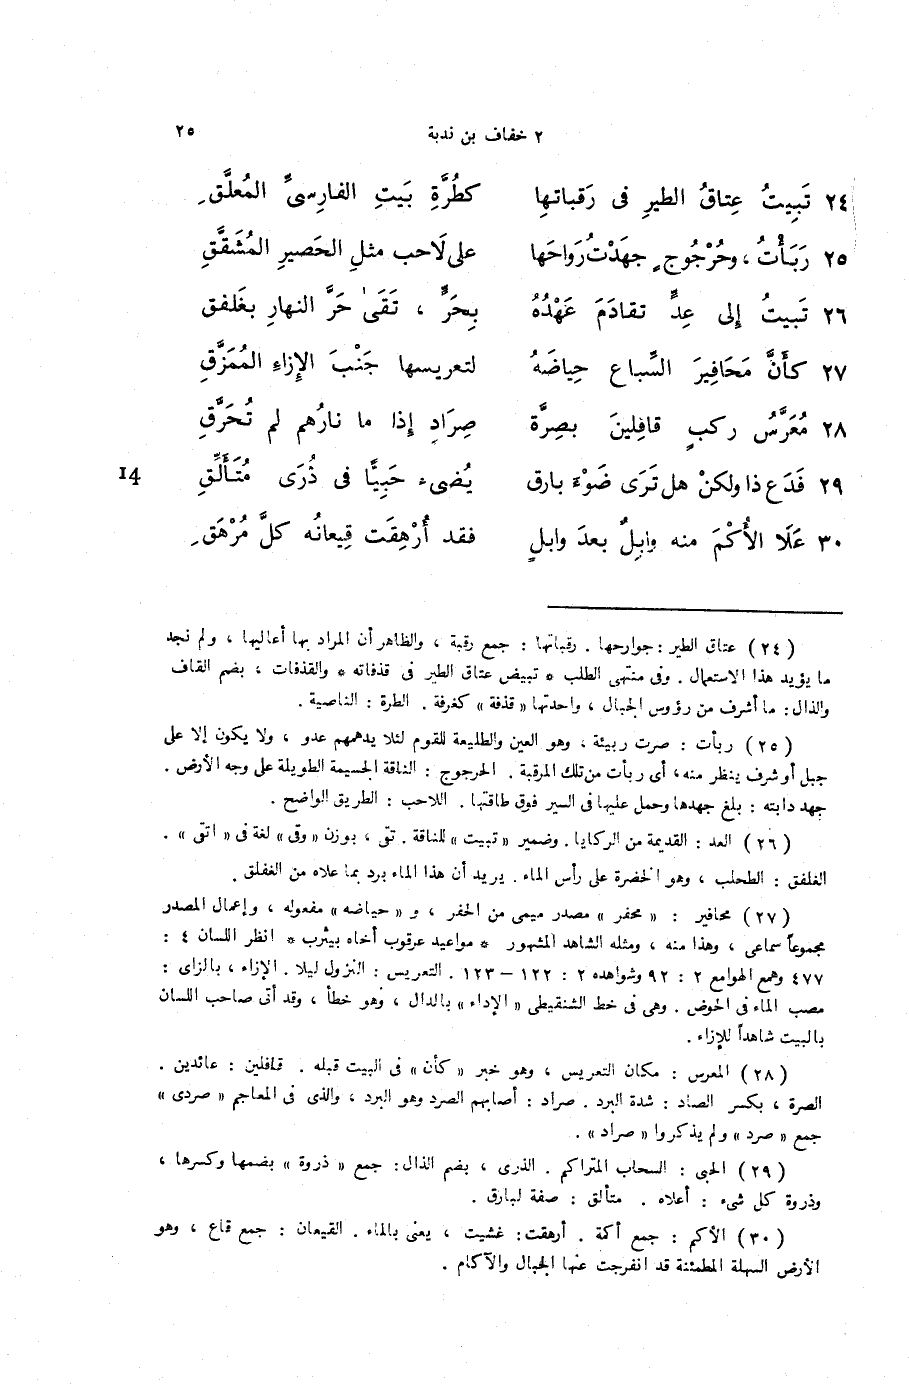 ٢ خفاف بن ندبة ٢٥
٢٤ تَبِيتُ عِتاقُ الطيرِ فى رَقباتها كطُرَّةِ بَيتِ الفارِسىِّ المُعلَّقِ
٢٥ رَبَأْتُ ، وحُرْجُوجٍ جهَدْتُ رَوَاحَها على لَاحب مثلِ الحَصيرِ المُشَقَّقِ
٢٦ تَبيتُ إلى عِدٍّ تقادَمَ عَهْدُهُ بِحَرٍّ ، تَقَى حَرَّ النهارِ بغَلفق
٢٧ كأَنَّ مَحَافِيرَ السِّباع حِياضَهُ لتعريسها جَنْبَ الإِزاءِ المُمَزَّقِ
٢٨ مُعَرَّسُ ركبٍ قافِلينَ بصِرَّة صِرَادٍ إذَا ما نارُهم لم تُحَرَّقِ
٢٩ فَدَع ذا ولكنْ هل تَرَى ضَوْءَ بارق يُضىء حَبِيًّا فى ذُرَى مُتَأَلِّقِ 14
٣٠ عَلَا الأُكْمَ منه وابِلٌ بعدَ وابلٍ فقد أُرْهِقَت قِيعانُه كلَّ مُرْهَقِ
( ٢٤ ) عتاق الطير : جوارحها . رقباتها : جمع رقبة ، والظاهر أن المراد بها أعاليها ، ولم نجد
ما يؤيد هذا الاستعمال . وفى منتهى الطلب * تبيض عتاق الطير فى قذفاته * والقذفات ، بضم القاف
والذال : ما أشرف من رؤوس الجبال ، واحدتها « قذفة » كغرفة . الطرة : الناصية .
( ٢٥ ) ربأت : صرت ربيئة ، وهو العين والطليعة للقوم لئلا يدهمهم عدو ، ولا يكون إلا على
جبل أو شرف ينظر منه ، أى ربأت من تلك المرقبة . الحرجوج : الناقة الجسيمة الطويلة على وجه الأرض .
جهد دابته : بلغ جهدها وحمل عليها فى السير فوق طاقتها . اللاحب : الطريق الواضح .
( ٢٦ ) العد : القديمة من الركايا . وضمير « تبيت » للناقة . تقى ، بوزن « وقى » لغة فى « اتقى » .
الغلفق : الطحلب ، وهو الخضرة على رأس الماء . يريد أن هذا الماء برد بما علاه من الغفلق .
( ٢٧ ) محافير : « محفر » مصدر ميمى من الحفر ، و « حياضه » مفعوله ، وإعمال المصدر
مجموعاً سماعى ، وهذا منه ، ومثله الشاهد المشهور * مواعيد عرقوب أخاه بيثرب * انظر اللسان ٤ :
٤٧٧ وهمع الهوامع ٢ : ٩٢ وشواهده ٢ : ١٢٢ – ١٢٣ . التعريس : النزول ليلا . الإزاء ، بالزاى :
مصب الماء فى الحوض . وهى فى خط الشنقيطى « الإداء » بالدال ، وهو خطأ ، وقد أتى صاحب اللسان
بالبيت شاهداً للإزاء .
( ٢٨ ) المعرس : مكان التعريس ، وهو خبر « كأن » فى البيت قبله . قافلين : عائدين .
الصرة ، بكسر الصاد : شدة البرد . صراد : أصابهم الصرد وهو البرد ، والذى فى المعاجم « صردى »
جمع « صرد » ولم يذكروا « صراد » .
( ٢٩ ) الحبى : السحاب المتراكم . الذرى ، بضم الذال : جمع « ذروة » بضمها وكسرها ،
وذروة كل شىء : أعلاه . متألق : صفة لبارق .
( ٣٠ ) الأكم : جمع أكمة . أرهقت : غشيت ، يعنى بالماء . القيعان : جمع قاع ، وهو
الأرض السهلة المطمئنة قد انفرجت عنها الجبال والآكام .